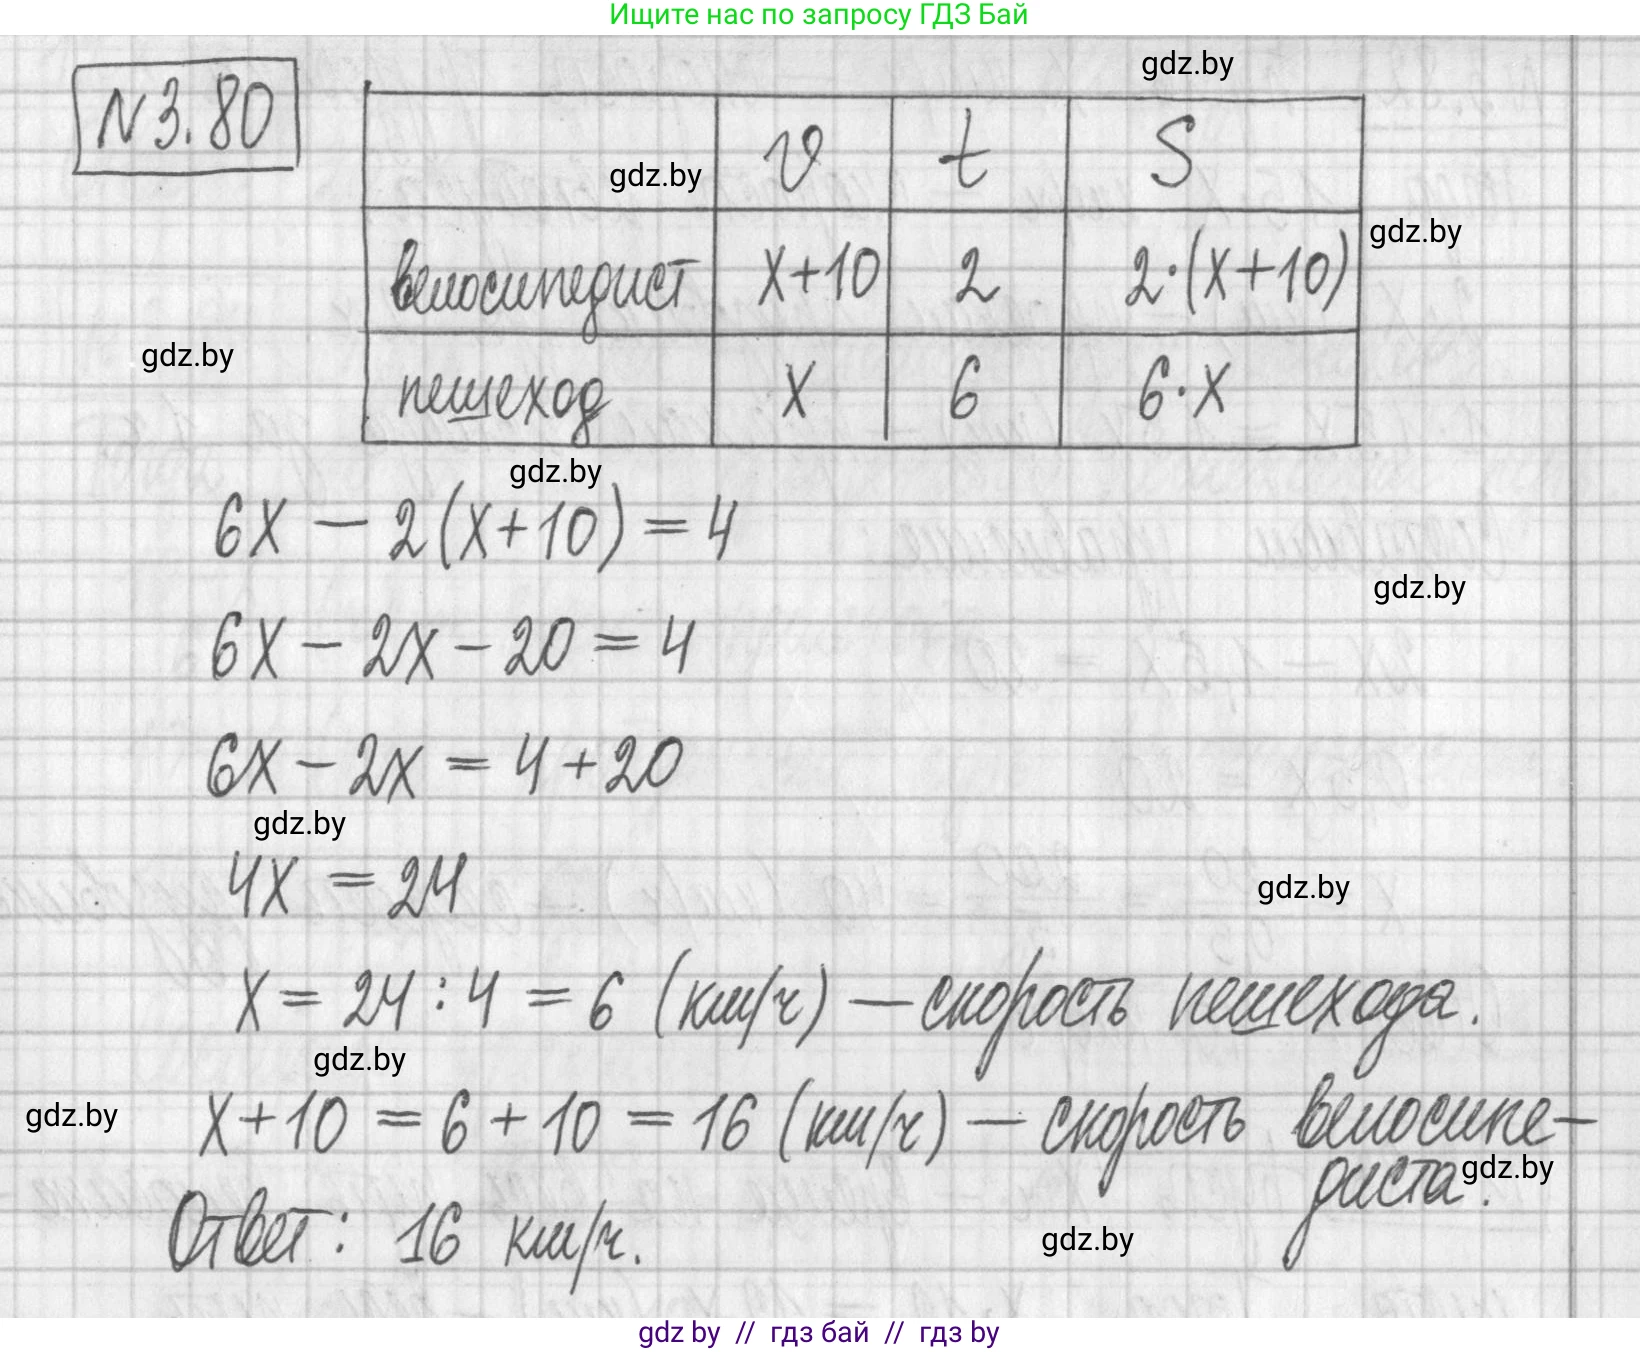 Ищите нас по запросу ГДЗ Бай
gdz.by
N 3.80
gdz.by v t S
gdz.by
велосипедист x+10 2 2·(x+10)
gdz.by
пешеход x 6 6·x
gdz.by
6x – 2(x+10) = 4
gdz.by
6x – 2x – 20 = 4
6x – 2x = 4 + 20
gdz.by
4x = 24
gdz.by
x = 24 : 4 = 6 (км/ч) – скорость пешехода.
gdz.by
gdz.by
x+10 = 6 + 10 = 16 (км/ч) – скорость велосипе-
диста.
gdz.by
Ответ: 16 км/ч.
gdz.by
gdz by // гдз бай // гдз by